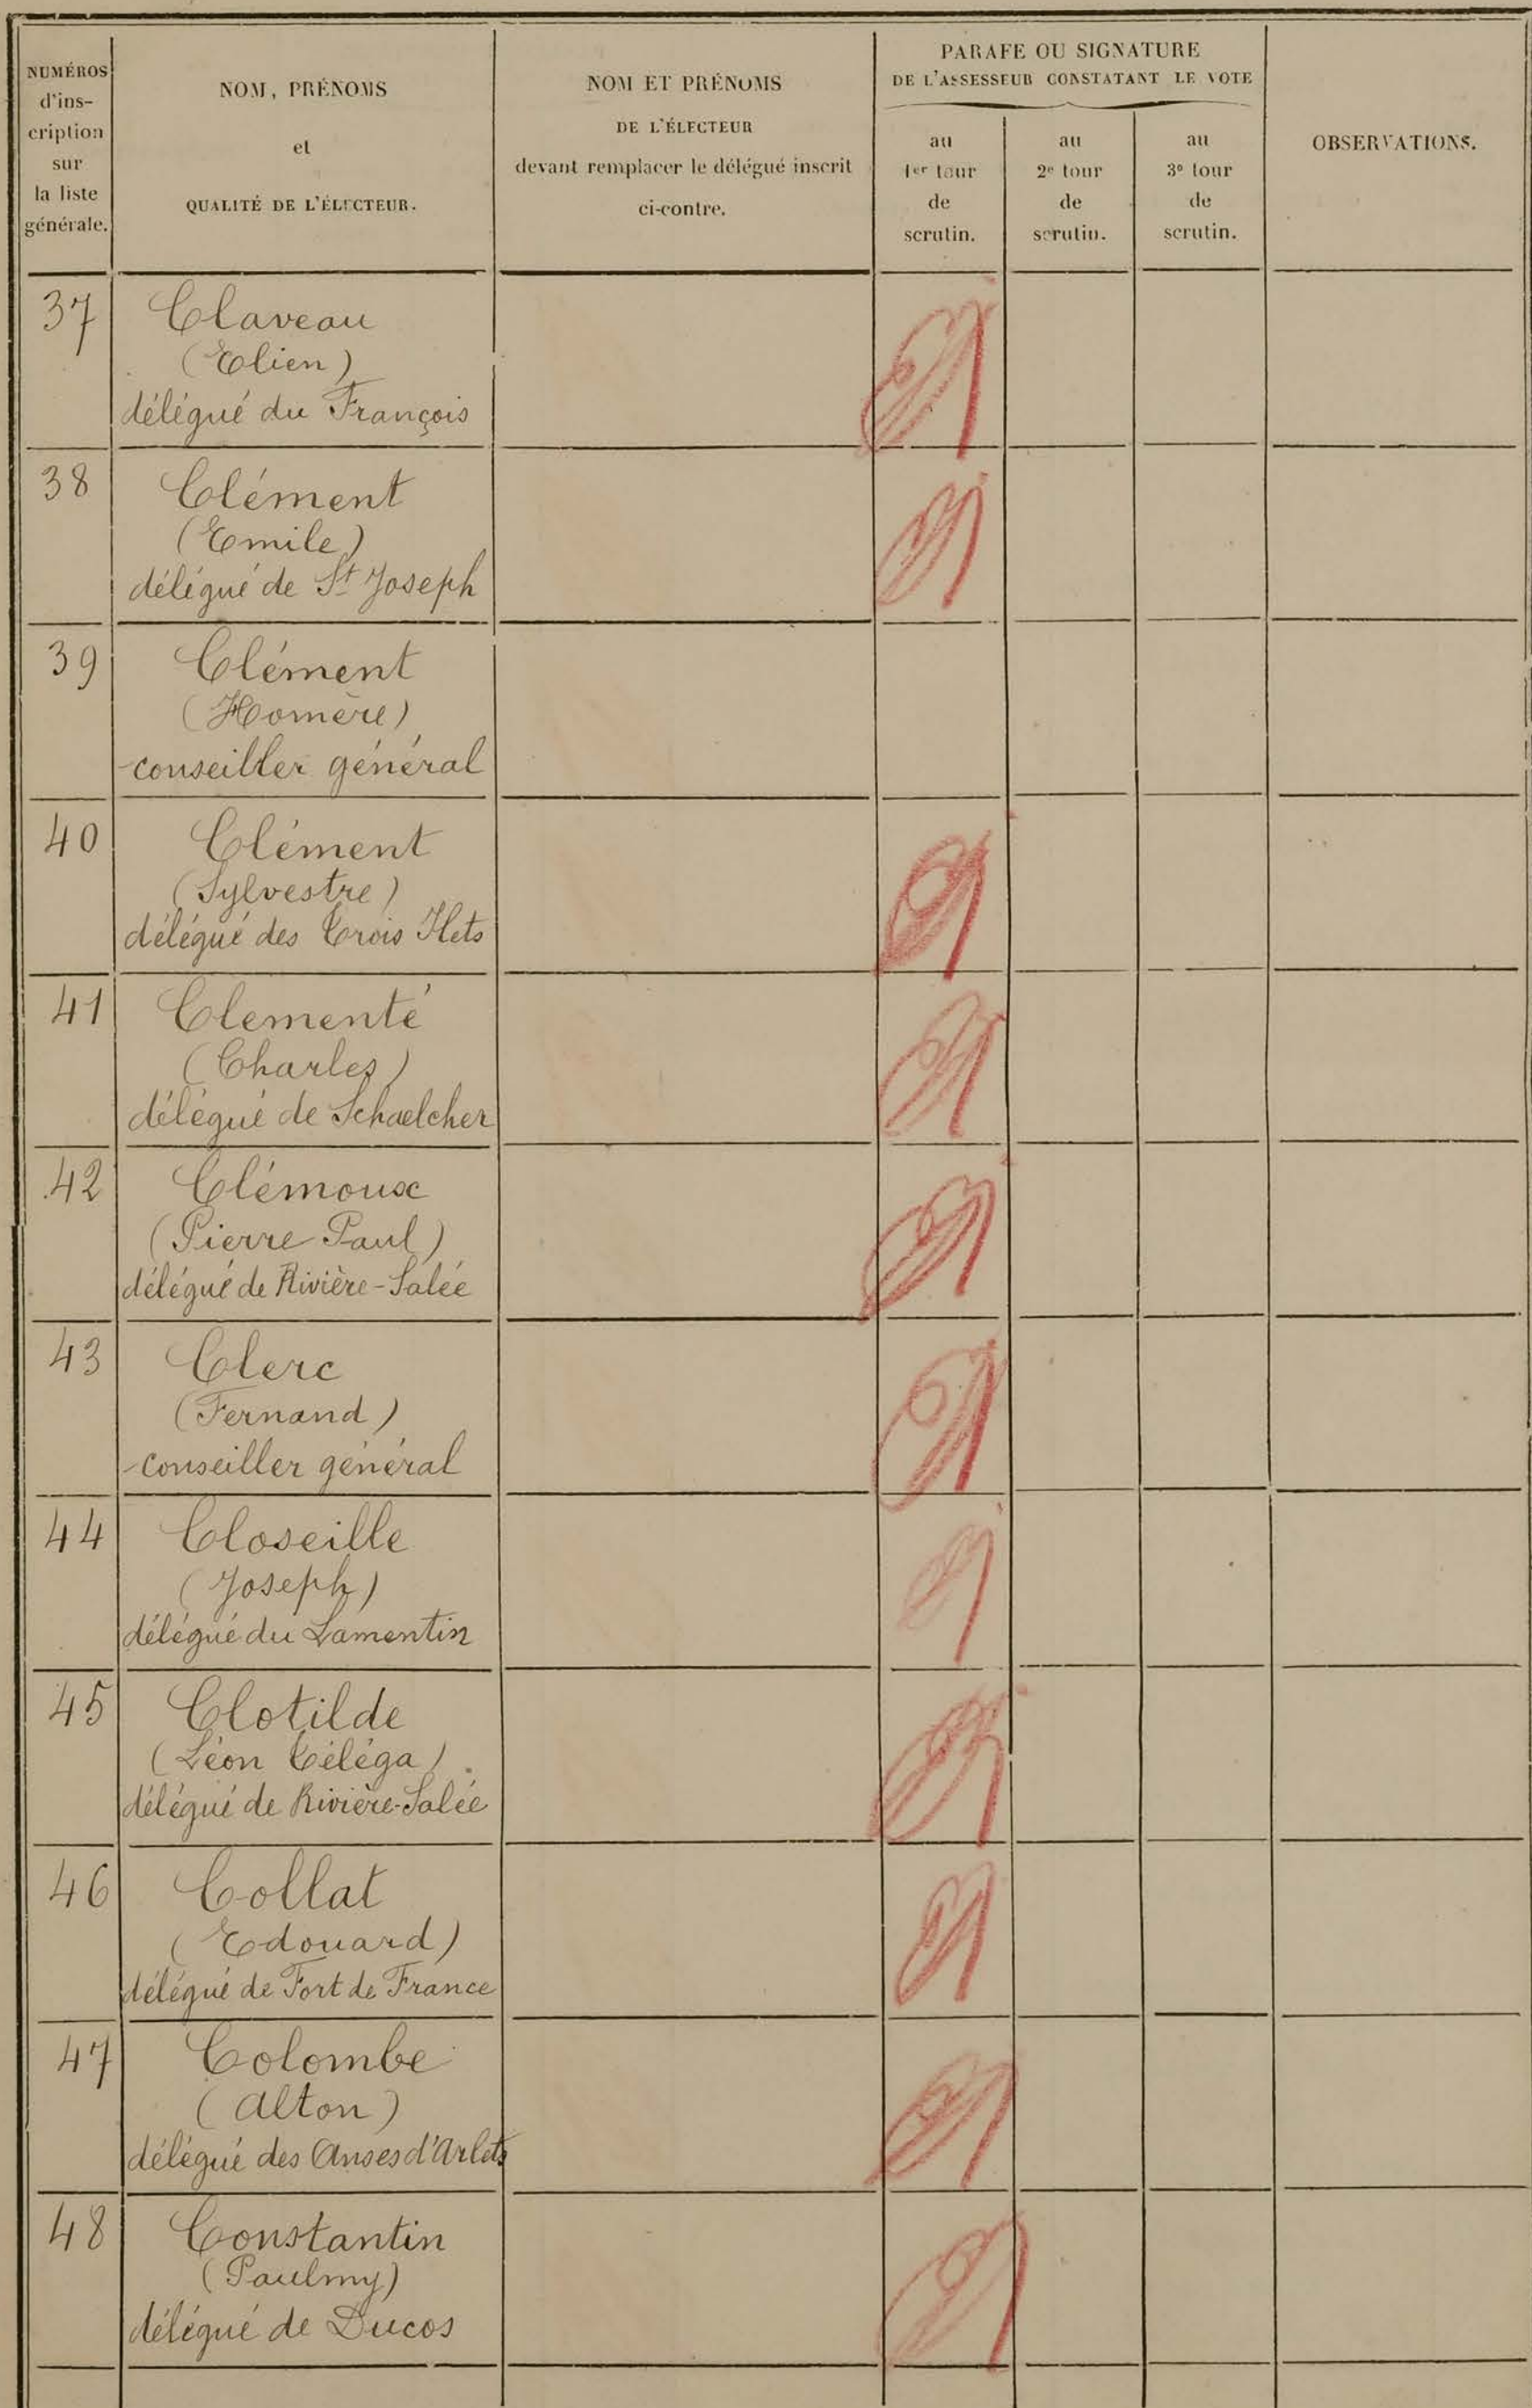 NUMÉROS
d'ins-
cription
sur
la liste
générale.
NOM, PRÉNOMS
et
QUALITÉ DE L'ÉLECTEUR.
NOM ET PRÉNOMS
DE L'ÉLECTEUR
devant remplacer le délégué inscrit
ci-contre.
PARAFE OU SIGNATURE
DE L'ASSESSEUR CONSTATANT LE VOTE
au
1er tour
de
scrutin.
au
2e tour
de
scrutin.
au
3e tour
de
scrutin.
OBSERVATIONS.
37 Claveau
(Elien)
délégué du François
38 Clément
(Emile)
délégué de St Joseph
39 Clément
(Homère)
conseiller général
40 Clément
(Sylvestre)
délégué des Trois Ilets
41 Clementé
(Charles)
délégué de Schaelcher
42 Clémoux
(Pierre Paul)
délégué de Rivière-Salée
43 Clerc
(Fernand)
conseiller général
44 Closeille
(Joseph)
délégué du Lamentin
45 Clotilde
(Léon Téléga)
délégué de Rivière-Salée
46 Collat
(Edouard)
délégué de Fort de France
47 Colombe
(Alton)
délégué des Anses d'Arlets
48 Constantin
(Paulmy)
délégué de Ducos